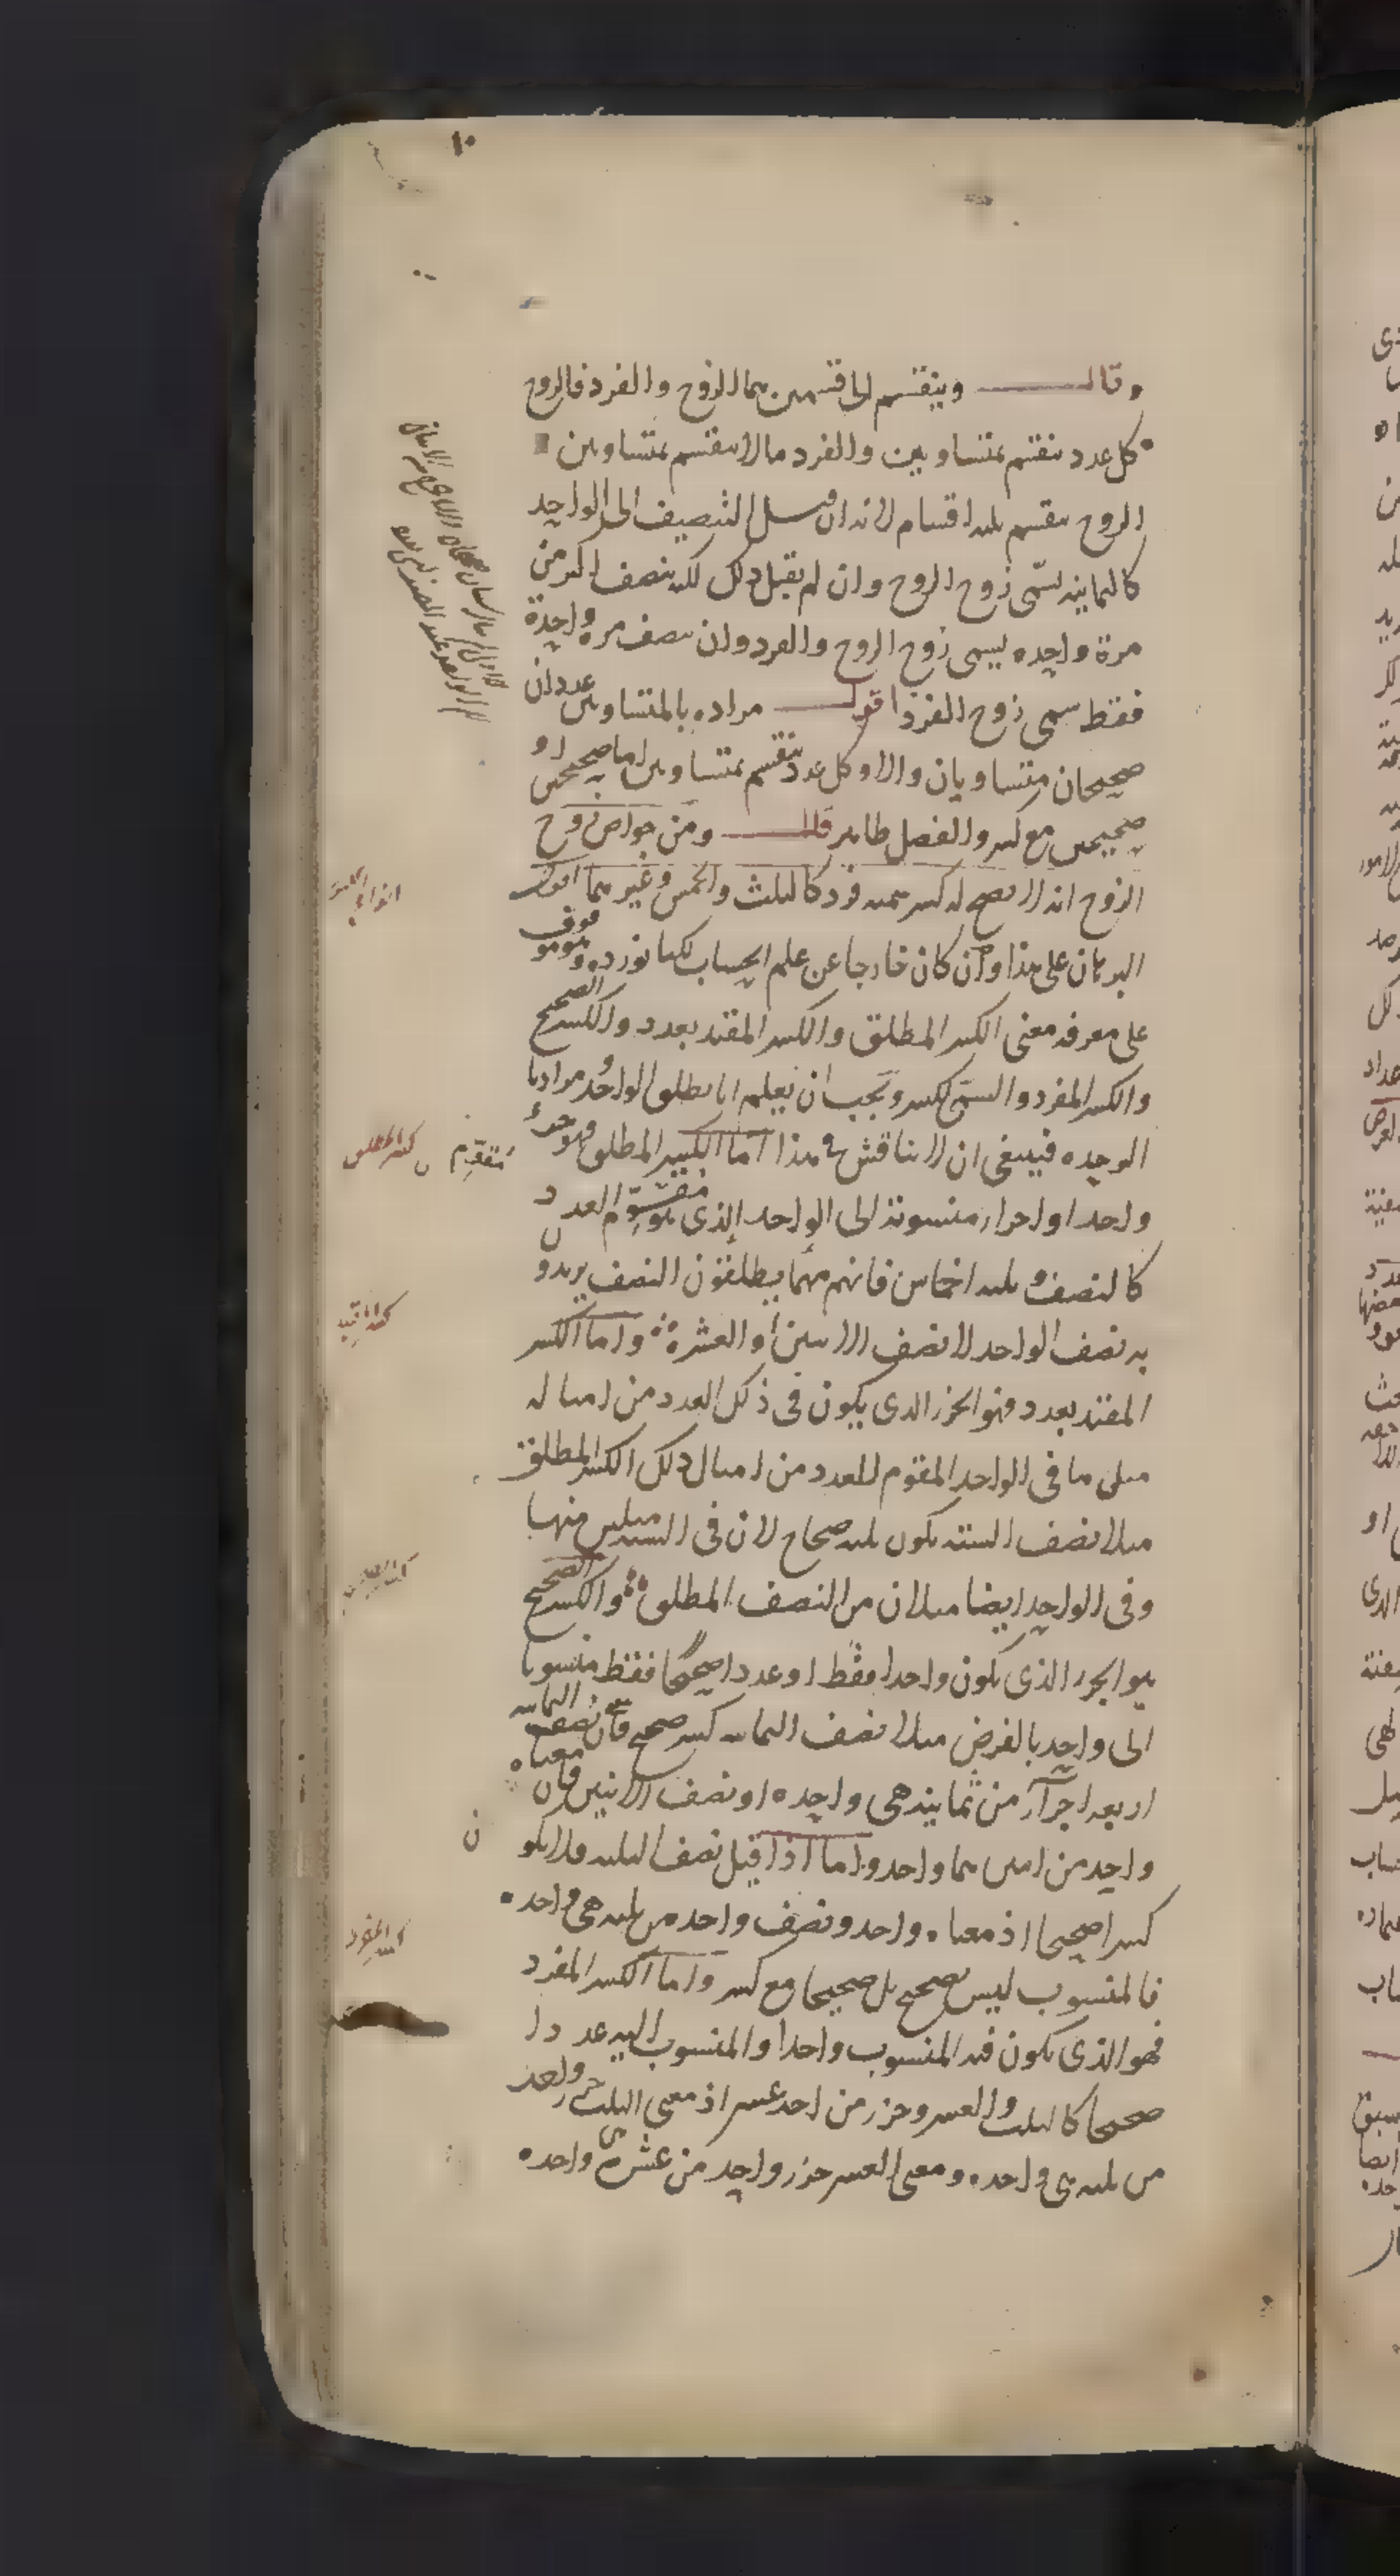 ١٠
وقال وينقسم الى قسمين هما الزوج والفرد فالزوج
كل عدد ينقسم بمتساويين والفرد ما لا ينقسم بمتساويين
الزوج ينقسم ثلثة اقسام لانه ان قبل التنصيف الى الواحد
كالثمانية يسمى زوج الزوج وان لم يقبل ذلك لكنه ينصف اكثر من
مرة واحدة يسمى زوج الزوج والفرد وان ينصف مرة واحدة
فقط سمى زوج الفرد اقول مراده بالمتساويين عددان
صحيحان متساويان والا وكل عدد ينقسم بمتساويين اما صحيحين او
صحيحين مع كسر والفصل ظاهر قال ومن خواص زوج
الزوج انه لا يصح له كسر سميه فرد كالثلث والخمس وغيرهما اقول
البرهان على هذا وان كان خارجا عن علم الحساب لكنا نورده وهو موقوف
على معرفة معنى الكسر المطلق والكسر المقيد بعدد والكسر الصحيح
والكسر المفرد والسمى للكسر ويجب ان يعلم انا نطلق الواحد ومرادنا
الوحدة فينبغى ان لا يناقش فى هذا اما الكسر المطلق فهو جزء
واحد او اجزاء منسوبة الى الواحد الذى هو مقوم العدد
كالنصف وثلثة اخماس فانهم مهما يطلقون النصف يريدو
به نصف الواحد لا نصف الاثنين او العشرة واما الكسر
المقيد بعدد فهو الجزء الذى يكون فى ذلك العدد من امثاله
مثل ما فى الواحد المقوم للعدد من امثال ذلك الكسر المطلق
مثلا نصف الستة يكون ثلثة صحاح لان فى الستة مثلين منها
وفى الواحد ايضا مثلان من النصف المطلق والكسر الصحيح
هو الجزء الذى يكون واحدا فقط او عددا صحيحا فقط منسوبا
الى واحد بالفرض مثلا نصف الثمانية كسر صحيح فان نصف الثمانية معناه
اربعة اجزاء من ثمانية هى واحدة او نصف الاثنين فان
واحد من اثنين هما واحد واما اذا قيل نصف الثلثة فلا يكو
ن
كسرا صحيحا اذ معناه واحد ونصف واحد من ثلثة هى واحد
فالمنسوب ليس بصحيح بل صحيحا مع كسر واما الكسر المفرد
فهو الذى يكون فيه المنسوب واحدا والمنسوب اليه عددا
صحيحا كالثلث والعشر وجزء من احد عشر اذ معنى الثلث جزء واحد
من ثلثة هى واحدة ومعنى العشر جزء واحد من عشرة هى واحدة
انواع
كسر المطلق
متقوم
كسر المقيد
كسر الصحيح
كسر المفرد